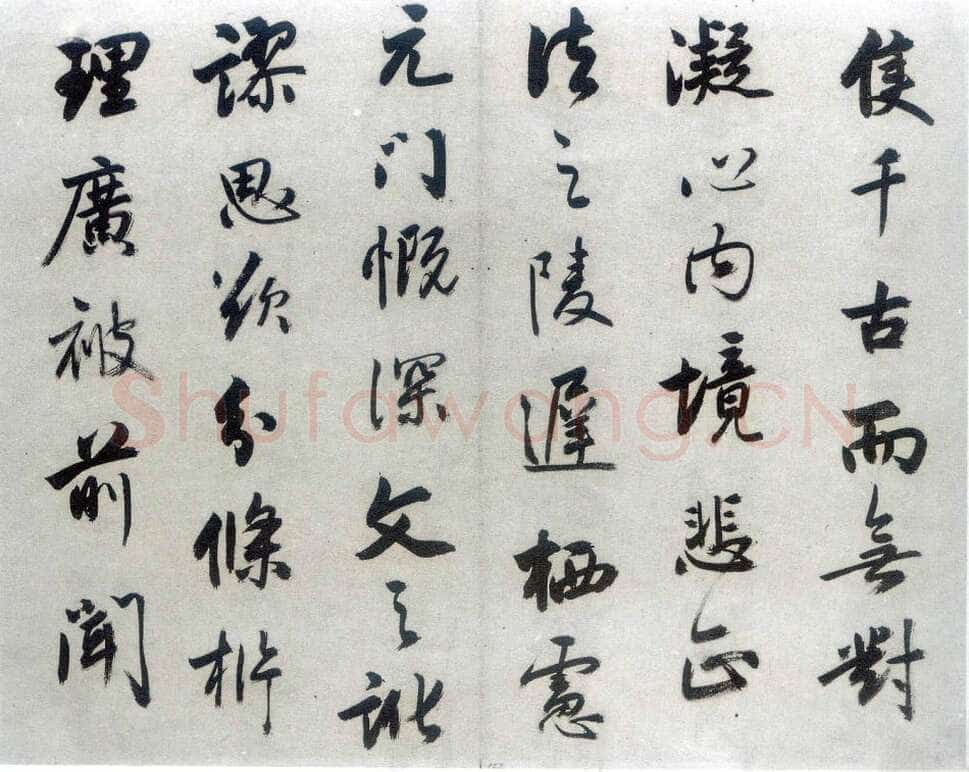 隻千古而無對
凝心内境悲正
法之陵遲栖慮
元門慨深文之訛
謬思欲分條析
理廣被前聞
Shufawang.CN